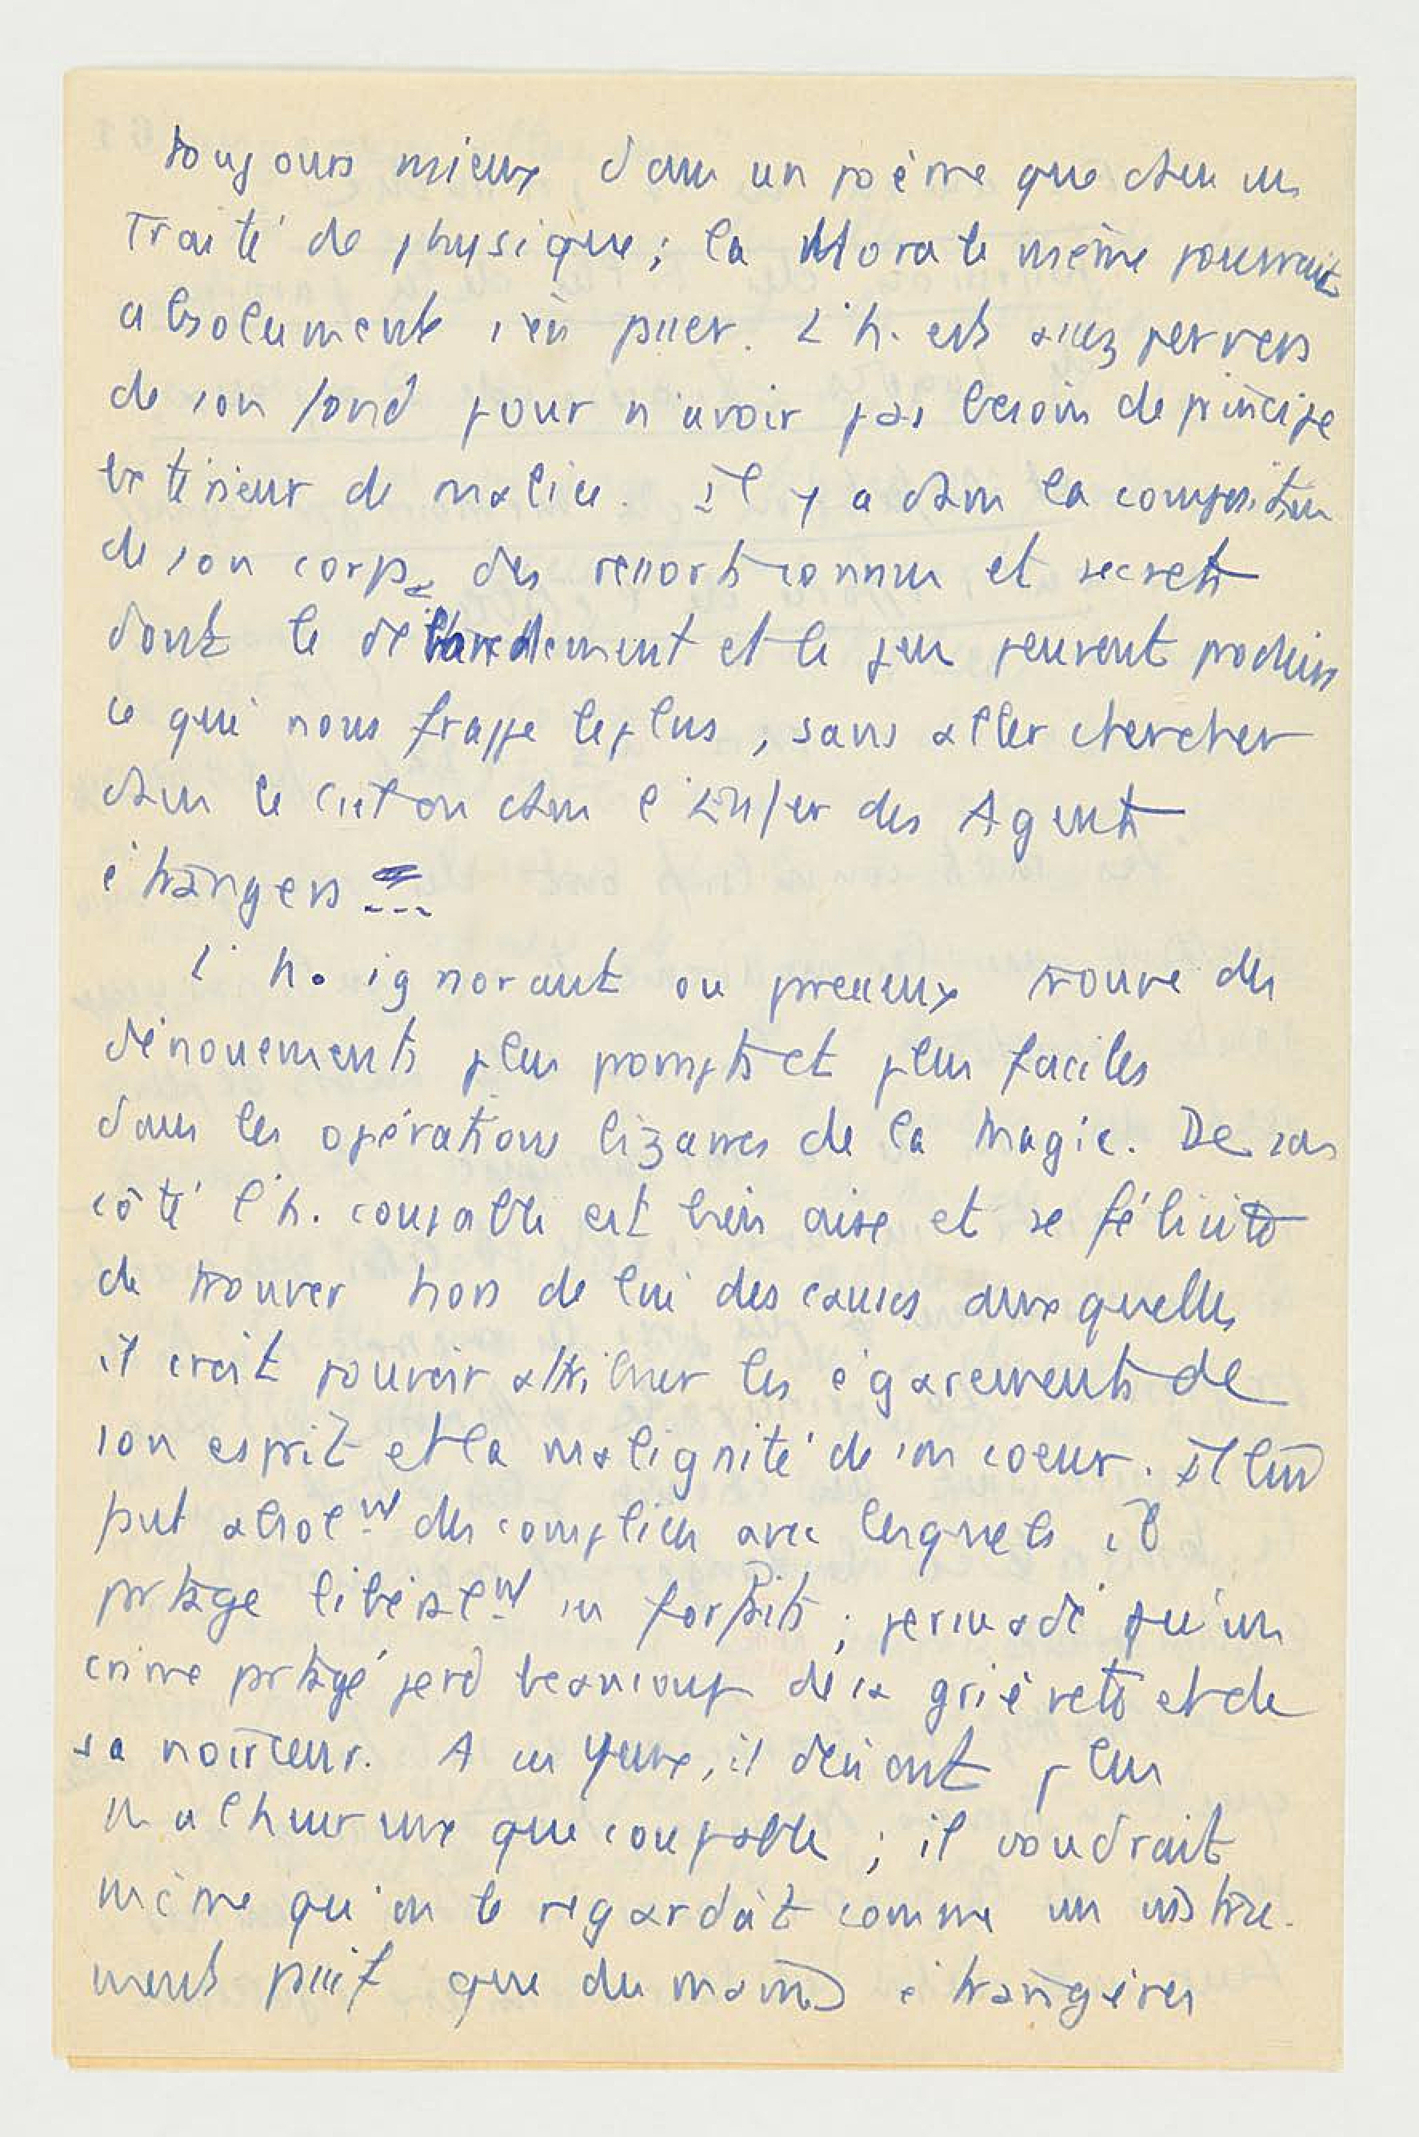 toujours mieux dans un poème que dans un
Traité de physique ; la Morale même pourrait
absolument s'en passer. L'h. est assez pervers
de son fond pour n'avoir pas besoin de principe
extérieur de malice. Il y a dans la composition
de son corps des ressorts connus et secrets
dont le débandement et le jeu peuvent produire
ce qui nous frappe le plus, sans aller chercher
dans le Ciel ou dans l'Enfer des Agents
étrangers ...
L'h. ignorant ou paresseux trouve des
dénouements plus prompts et plus faciles
dans les opérations bizarres de la Magie. De son
côté l'h. coupable est bien aise et se félicite
de trouver hors de lui des causes auxquelles
il croit pouvoir attribuer les égarements de
son esprit et la malignité de son coeur. Il lui
faut absolmt des complices avec lesquels il
partage libéralmt ses forfaits ; persuadé qu'un
crime partagé perd beaucoup de sa grièveté et de
sa noirceur. A ses yeux, il devient plus
malheureux que coupable ; il voudrait
même qu'on le regardât comme un instru-
ment passif que des mains étrangères